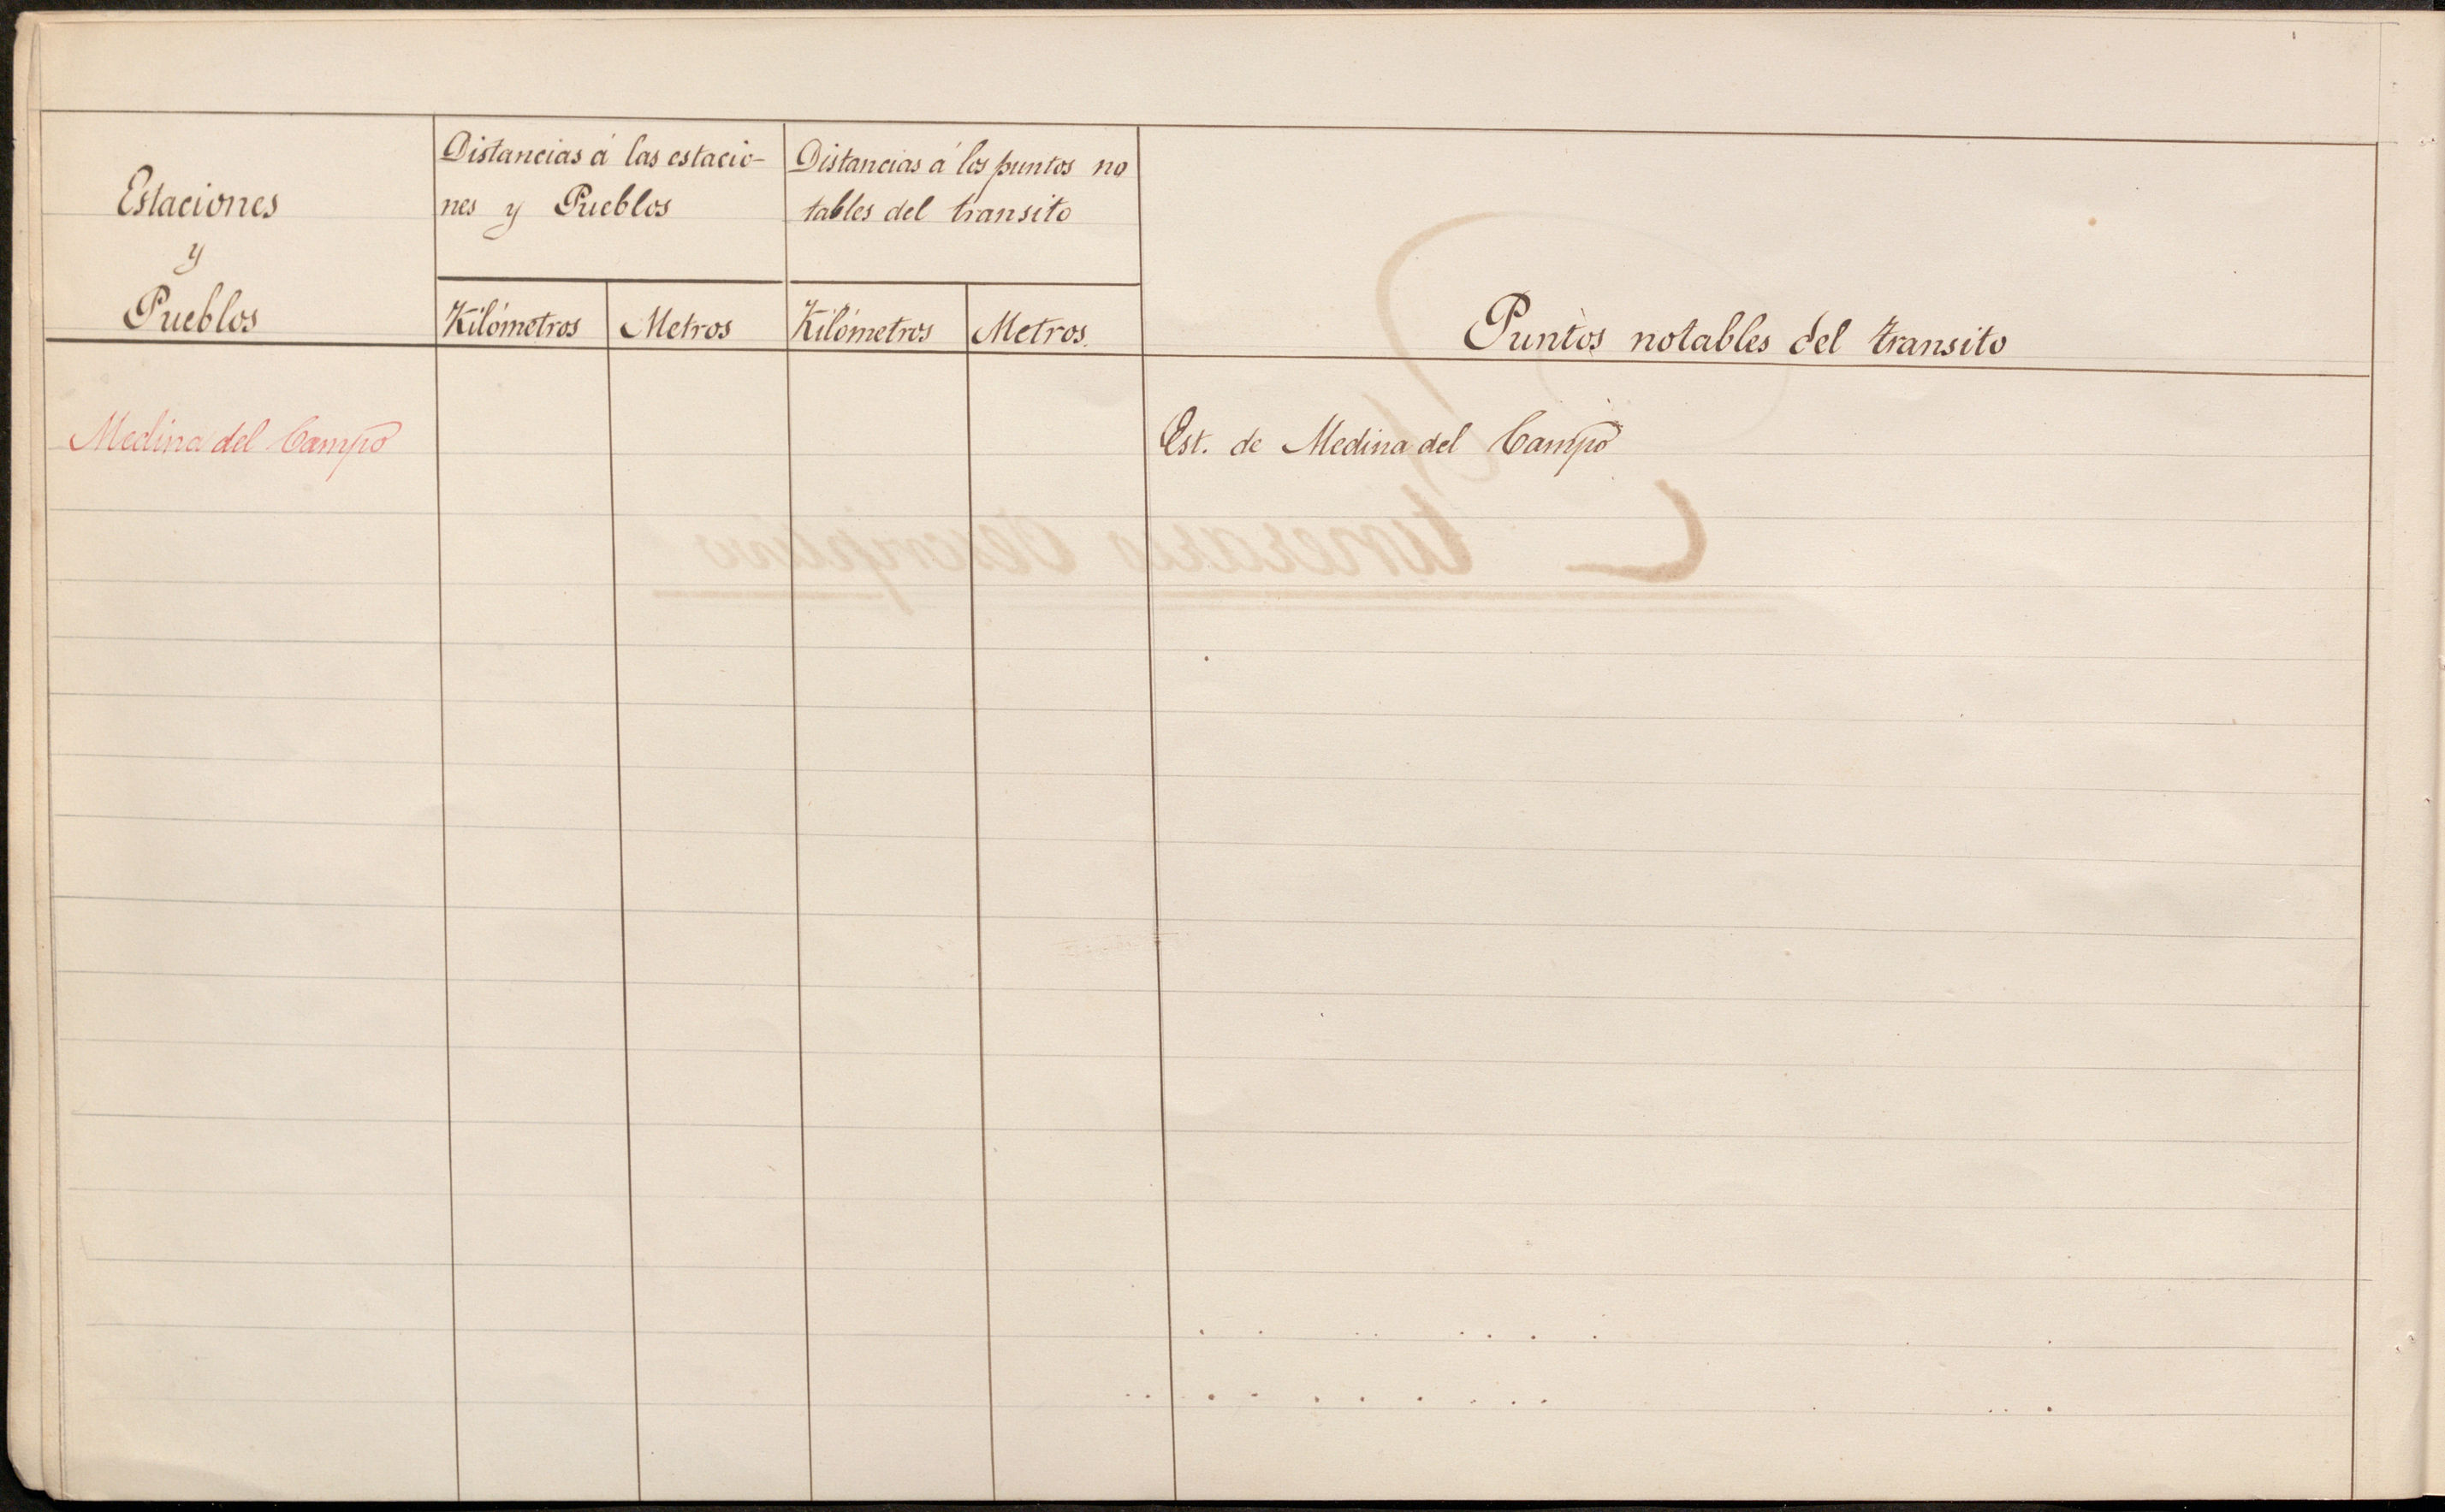 Estaciones
y
Pueblos
Distancias á las estacio-
nes y Pueblos
Distancias á los puntos no
tables del transito
Kilómetros Metros Kilómetros Metros.
Puntos notables del transito
Medina del Campo
Est. de Medina del Campo
Itinerario descriptivo